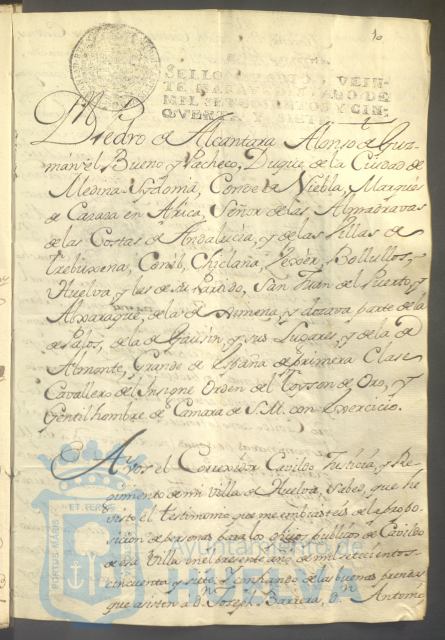 10
SELLO QUARTO, VEIN-
TE MARAVEDIS, AÑO DE
MIL SETECIENTOS Y CIN-
QUENTA Y SIETE.
Dn. Pedro de Alcantara Alonso de Guz-
mán el Bueno y Pacheco, Duque de la Ciudad de
Medina Sydonia, Conde de Niebla, Marqués
de Cazaza en Africa, Señor de las Almadravas
de las Costas de Andalucia, y de las Villas de
Trebuxena, Conil, Chiclana, Xexèr, Bollullos, y
Huelva, y las de su partido, San Juan del Puerto, y
Alxaraque, de la de Ximena, y dozava parte de la
de Palos, de la de Gaucin, y sus Lugares, y de la de
Almonte, Grande de España de primera Clase
Cavallero del Insigne Orden del Toyson de Oro, y
Gentilhombre de Camara de S.M. con Exercicio.
A vos el Correxidor Cavildo, Justicia, y Re-
gimiento de mi villa de Huelva, sabed, que he
visto el testimonio que me embiasteis de la propo-
sicion de personas para los oficios publicos de Cavildo
de esa Villa en el presente año de mil setecientos
cincuenta y siete, y confiando de las buenas prendas
que asisten a Dn. Joseph Barrera, Dn. Antonio
PORTUS MARIS
ET TERRÆ
Ayuntamiento de
HUELVA